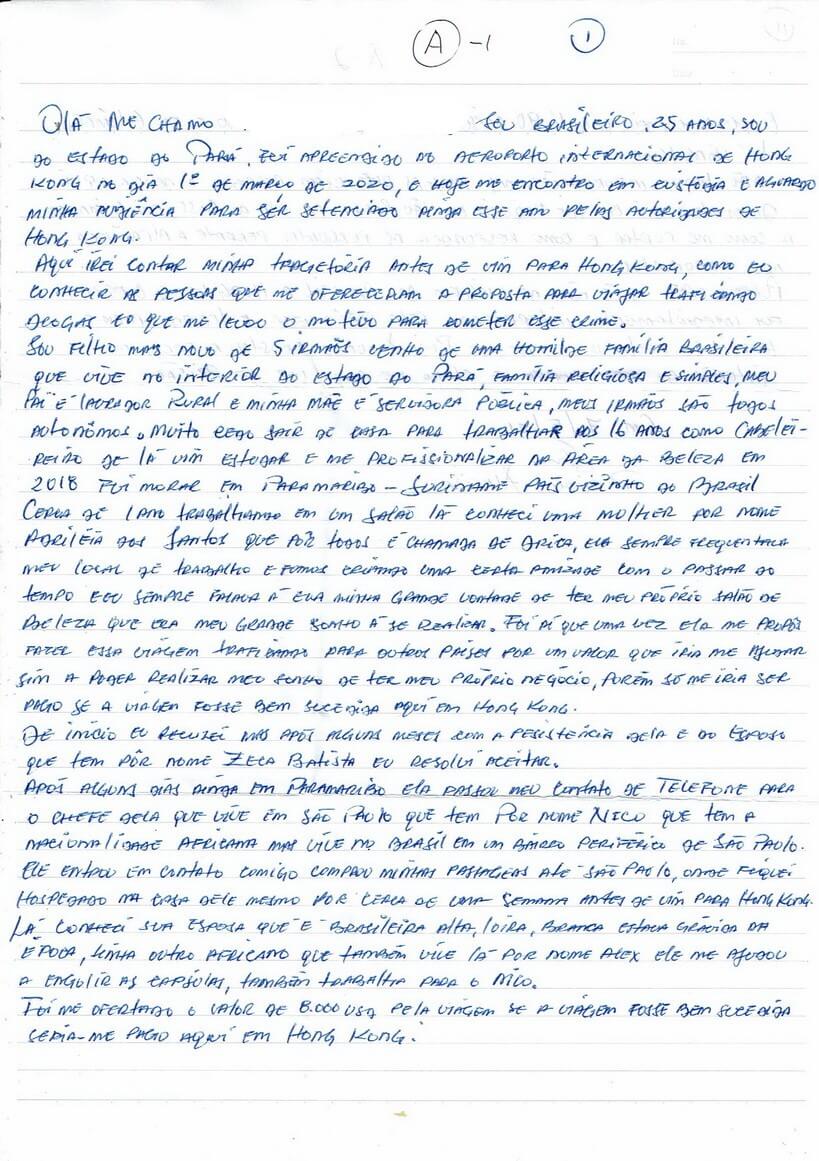 A -1 1
Olá me chamo . Sou brasileiro, 25 anos, sou
do estado do Pará, fui apreendido no aeroporto internacional de Hong
Kong no dia 1º de março de 2020, e hoje me encontro em custódia e aguardo
minha audiência para ser setenciado ainda esse ano pelas autoridades de
Hong Kong.
Aqui irei contar minha tragetória antes de vim para Hong Kong, como eu
conhecir as pessoas que me ofereceram a proposta para viajar traficando
drogas e o que me levou o motivo para cometer esse crime.
Sou filho mais novo de 5 irmãos venho de uma homilde família brasileira
que vive no interior do estado do Pará, família religiosa e simples, meu
pai é lavrador rural e minha mãe é servidora pública, meus irmãos são todos
autonômos. Muito cedo sair de casa para trabalhar aos 16 anos como cabelei-
reiro de lá vim estudar e me profissionalizar na área da beleza em
2018 fui morar em Paramaribo - Suriname país vizinho do Brasil
Cerca de 1 ano trabalhando em um salão lá conheci uma mulher por nome
Adriléia dos Santos que por todos é chamada de Drica, ela sempre frequentava
meu local de trabalho e fomos criando uma certa amizade com o passar do
tempo e eu sempre falava á ela minha grande vontade de ter meu próprio salão de
beleza que era meu grande sonho á se realizar. Foi aí que uma vez ela me propôs
fazer essa viagem traficando para outros países por um valor que iria me ajudar
sim a poder realizar meu sonho de ter meu próprio negócio, porém só me iria ser
pago se a viagem fosse bem sucedida aqui em Hong Kong.
De início eu recusei mas após alguns meses com a pesistência dela e do esposo
que tem pôr nome Zeca Batista eu resolvi aceitar.
Após alguns dias ainda em Paramaribo ela passou meu contato de telefone para
o chefe dela que vive em São Paulo que tem por nome Nico que tem a
nacionalidade africana mas vive no Brasil em um bairro periférico de São Paulo.
Ele entrou em contato comigo comprou minhas passagens até São Paulo, onde fiquei
hospedado na casa dele mesmo por cerca de uma semana antes de vim para Hong Kong.
Lá conheci sua esposa que é brasileira alta, loira, branca estava grávida na
época, tinha outro africano que também vive lá por nome Alex ele me ajudou
a engolir as capsulas, também trabalha para o Nico.
Foi me ofertado o valor de 8.000 usd pela viagem se a viagem fosse bem sucedida
seria-me pago aqui em Hong Kong.